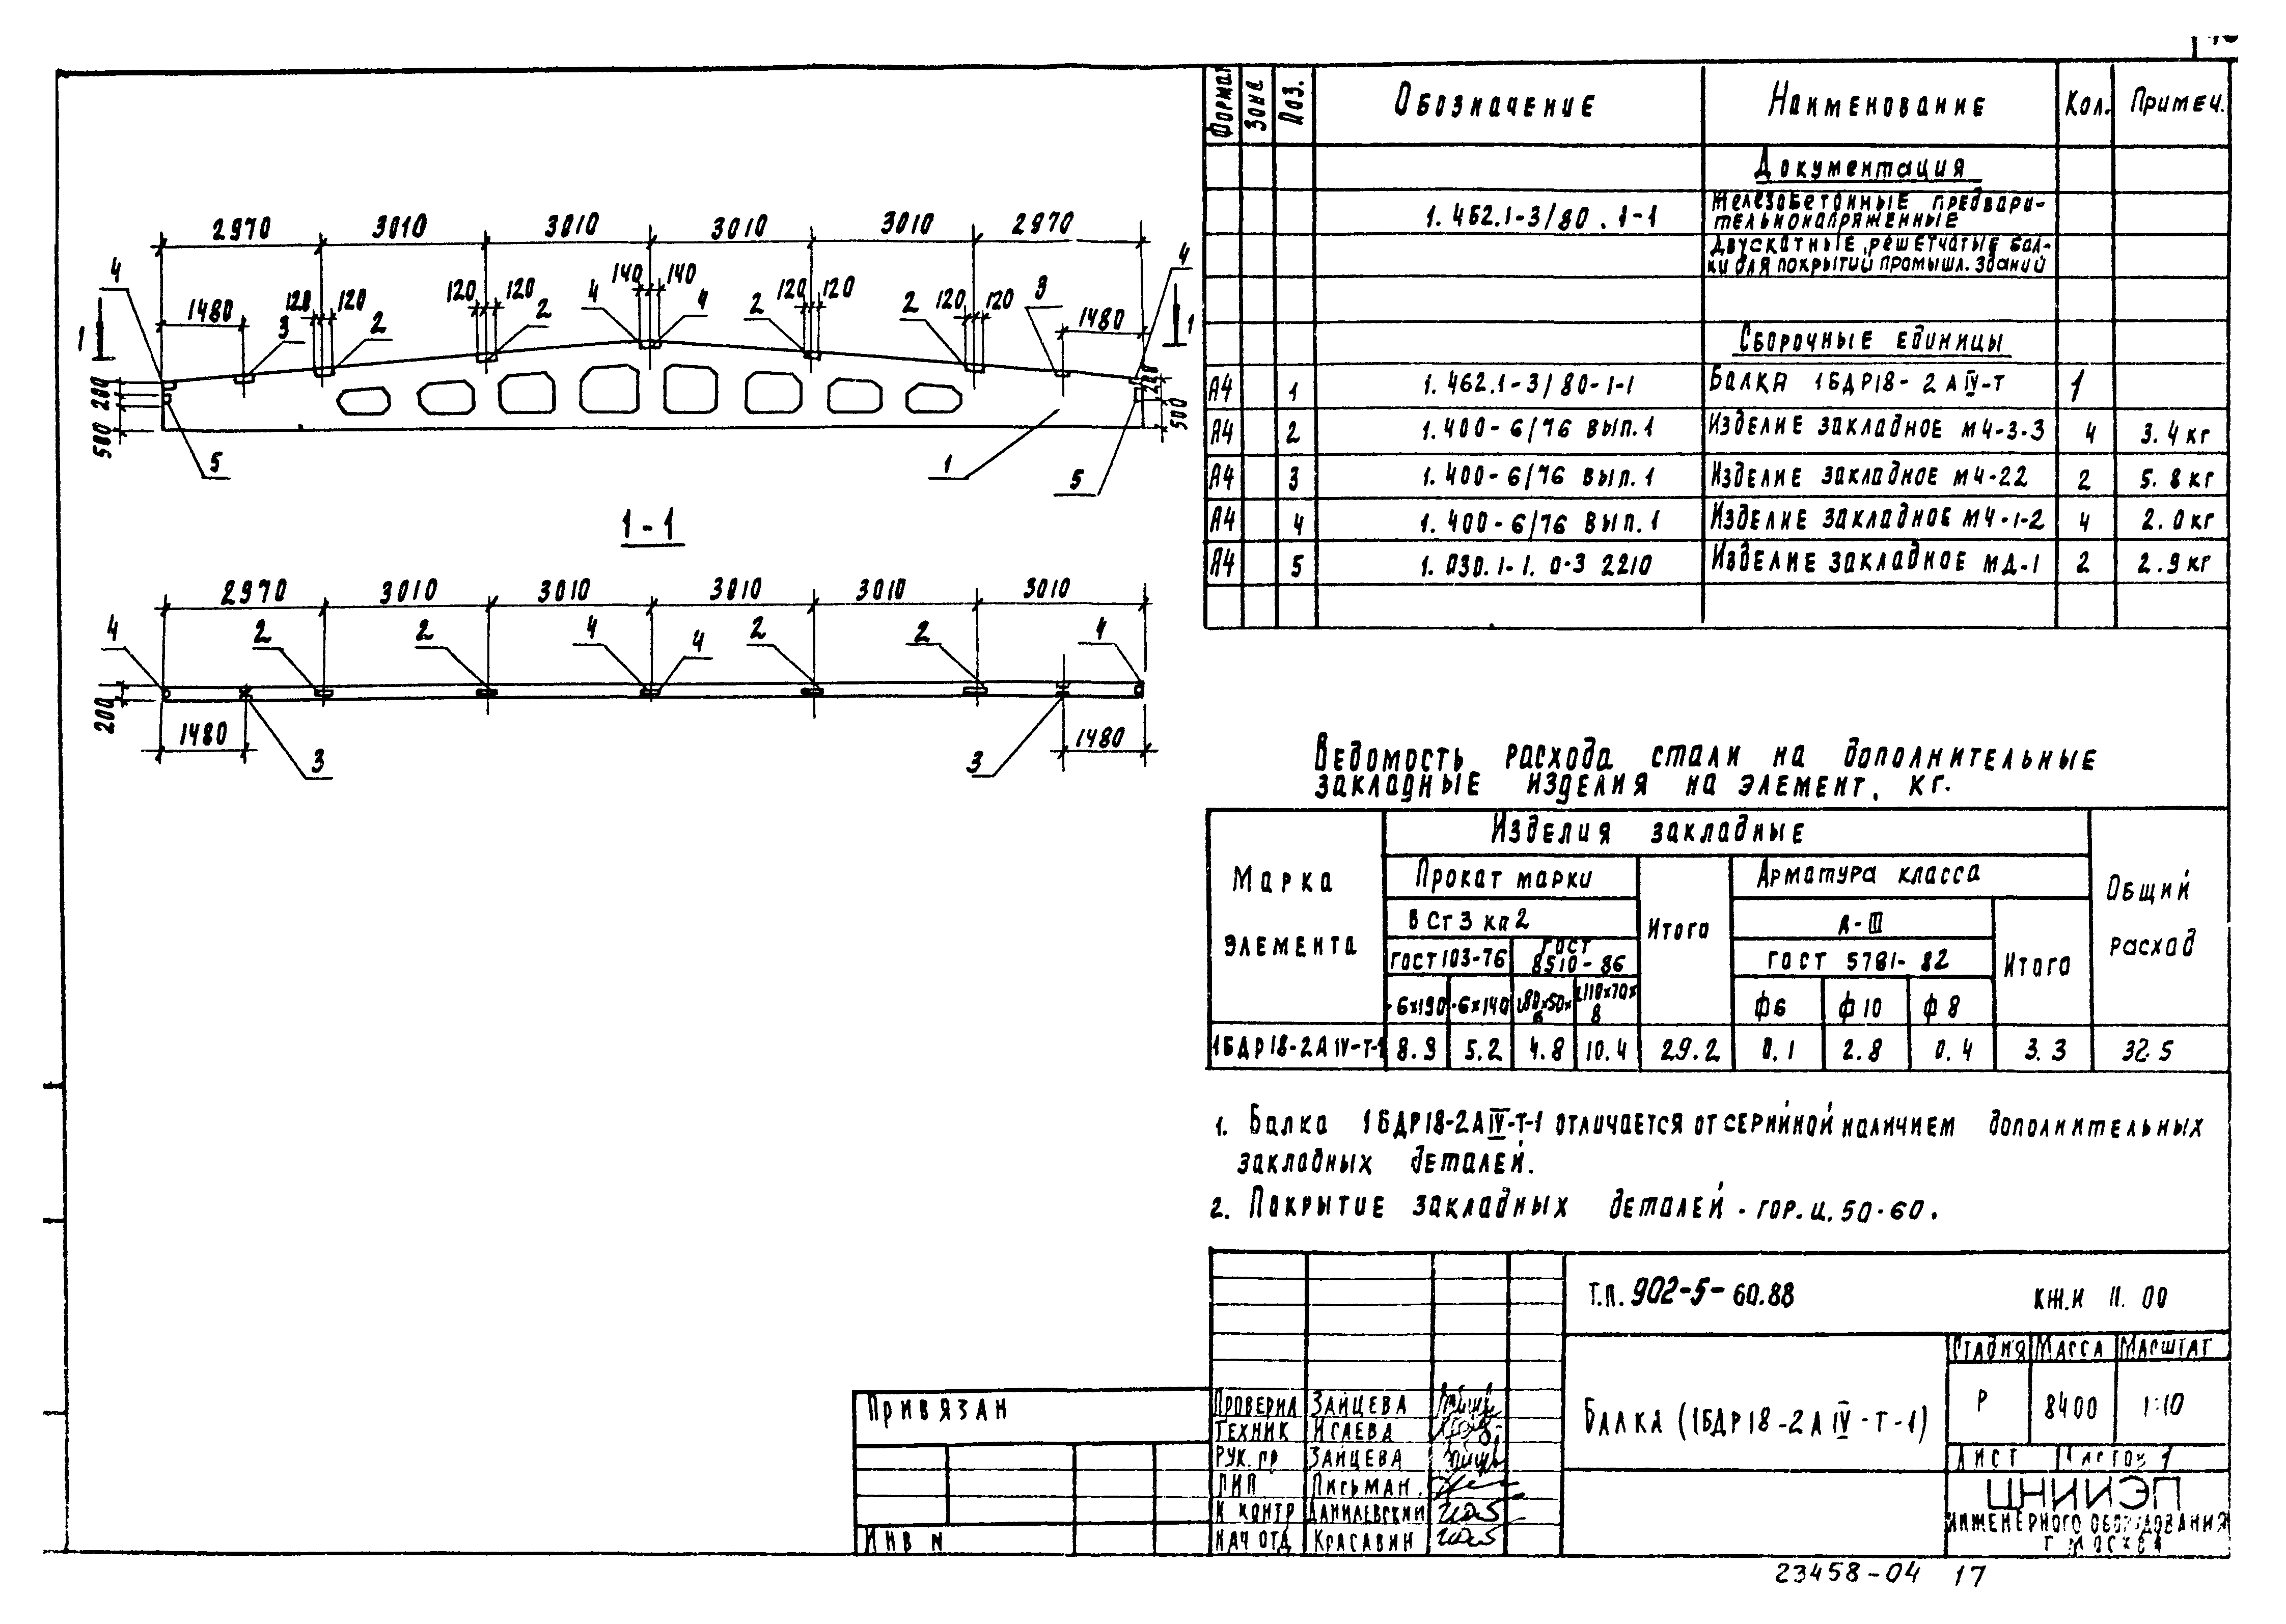 2970 3010 3010 3010 3010 2970
4 1480 120 120 120 120 140 140 120 120 120 120 1480 4
1 3 2 2 4 4 2 2 3 1
200 200 500
200 500
5 1 5
1-1
2970 3010 3010 3010 3010 3010
4 2 2 4 4 2 2 4
200
1480 3 3 1480
Формат Зона Поз. Обозначение Наименование Кол. Примеч.
Документация
1.462.1-3/80.1-1 Железобетонные предвари-
тельнонапряженные
двускатные решетчатые бал-
ки для покрытий промышл. зданий
Сборочные единицы
А4 1 1.462.1-3/80-1-1 Балка 1БДР18-2АIV-Т 1
А4 2 1.400-6/76 вып.1 Изделие закладное М4-3-3 4 3.4кг
А4 3 1.400-6/76 вып.1 Изделие закладное М4-22 2 5.8кг
А4 4 1.400-6/76 вып.1 Изделие закладное М4-1-2 4 2.0кг
А4 5 1.030.1-1.0-3 2210 Изделие закладное МД-1 2 2.9кг
Ведомость расхода стали на дополнительные
закладные изделия на элемент, кг.
Марка элемента Изделия закладные Общий расход
Прокат марки Итого Арматура класса
ВСт3кп2 А-III Итого
ГОСТ103-76 ГОСТ 8510-86 ГОСТ 5781-82
-6х190 -6х140 L80х50х6 L110х70х8 ф6 ф10 ф8
1БДР18-2АIV-Т-1 8.9 5.2 4.8 10.4 29.2 0.1 2.8 0.4 3.3 32.5
1. Балка 1БДР18-2АIV-Т-1 отличается от серийной наличием дополнительных
закладных деталей.
2. Покрытие закладных деталей - гор.ц.50-60.
Т.П. 902-5-60.88 КЖ.И 11.00
Балка (1БДР18-2АIV-Т-1)
Стадия Масса Масштаб
Р 8400 1:10
Лист Листов 1
ЦНИИЭП
инженерного оборудования
г. Москва
Проверил Зайцева
Техник Исаева
Рук. гр Зайцева
ГИП Письман
Н контр Данилевский
Нач отд Красавин
Привязан
Инв N
23458-04 17